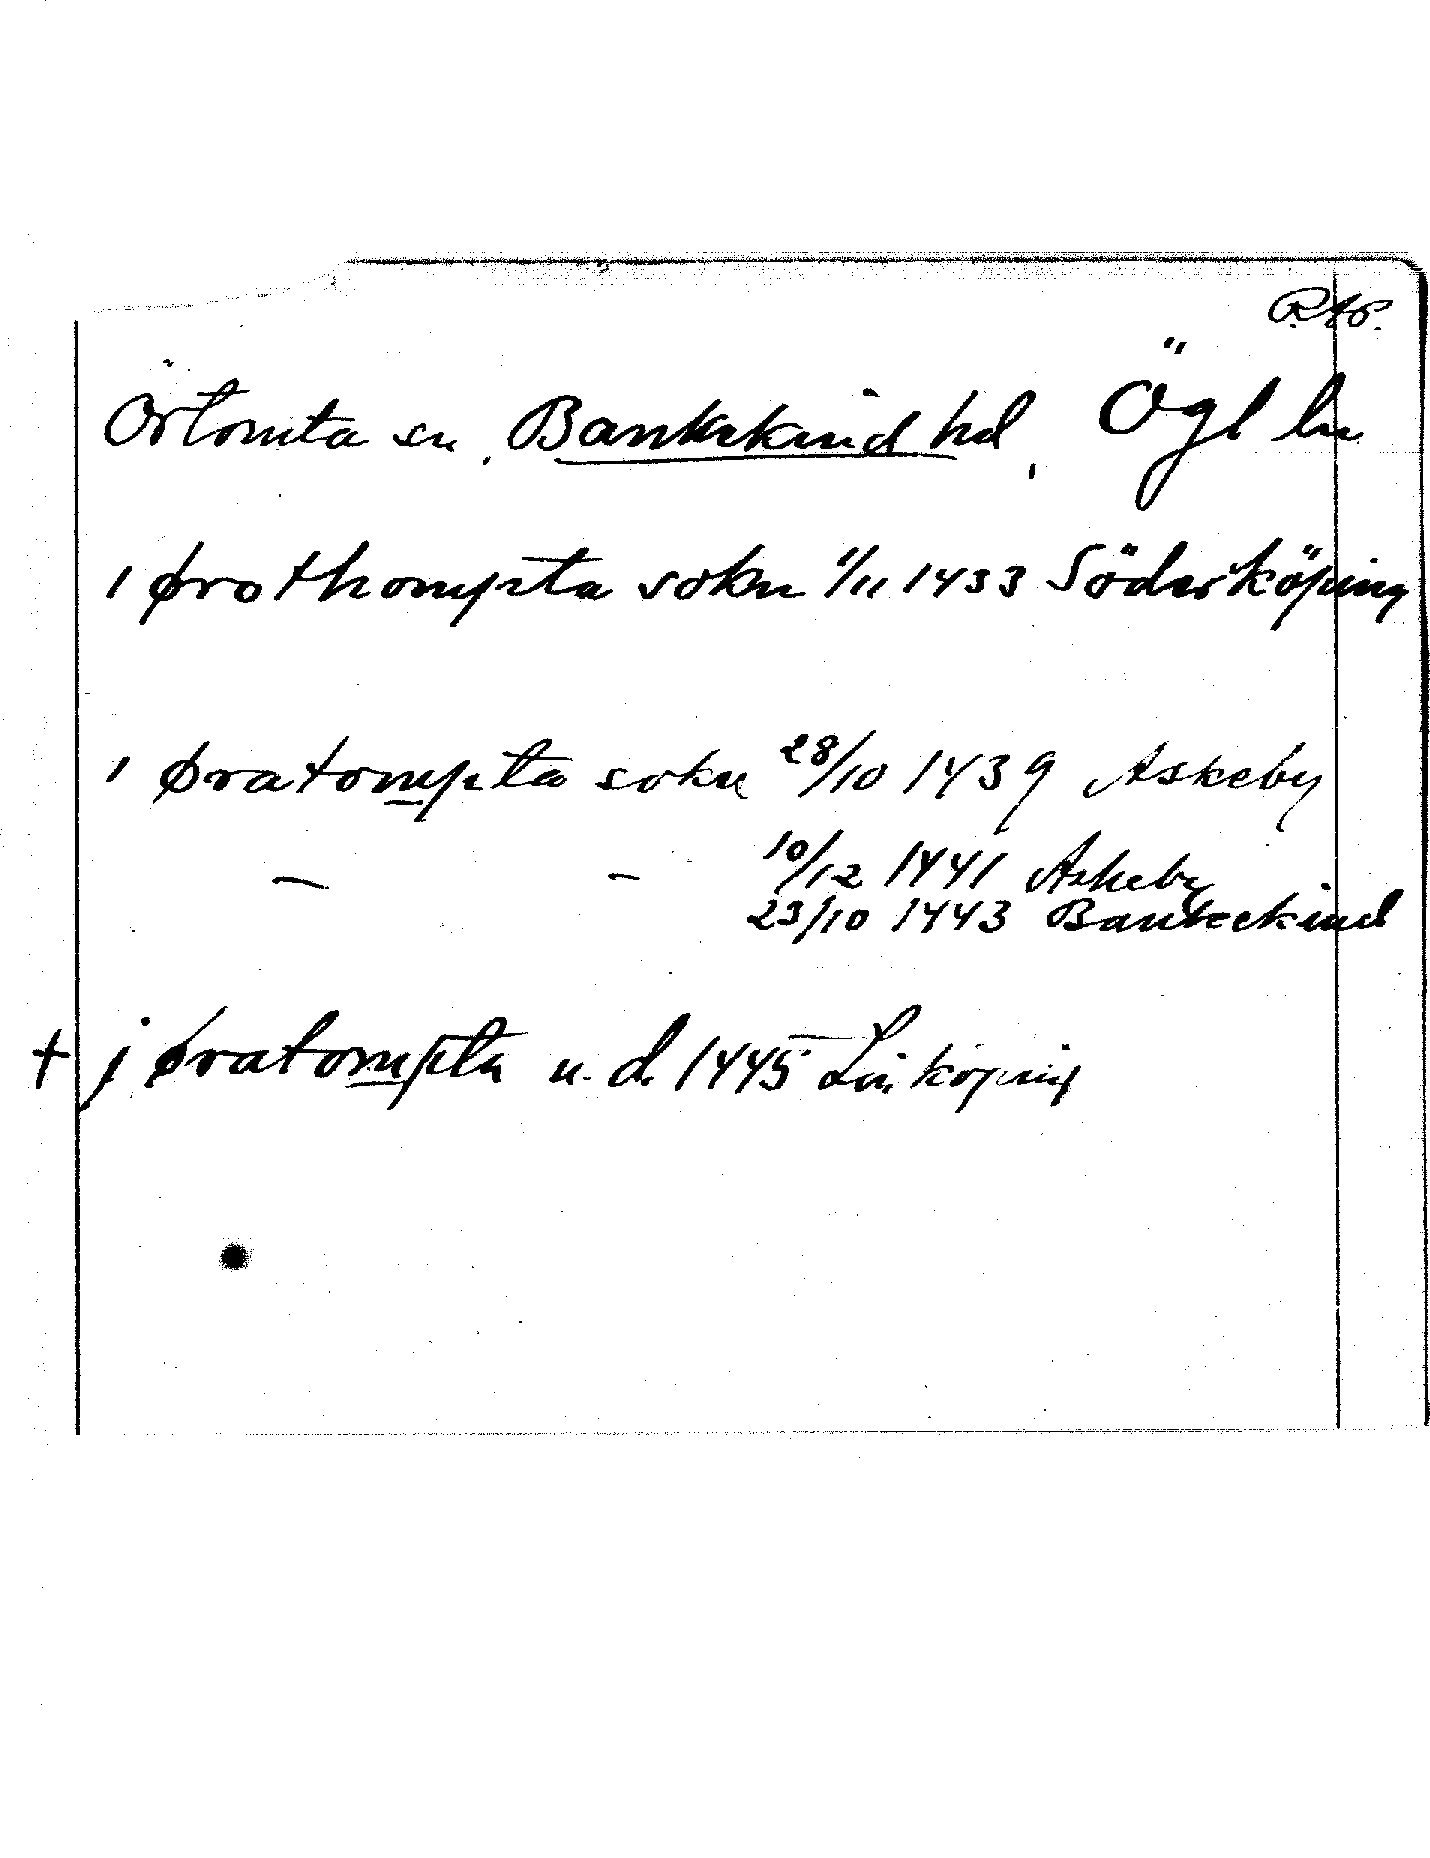 R.A.P.
Örtomta sn, Bankekind hd, Ögl ln
i ørothompta sokn 1/11 1433 Söderköping
i øratompta sokn 28/10 1439 Askeby
— — 10/12 1441 Askeby
23/10 1443 Bankekind
+ j øratompta u. d. 1445 Linköping